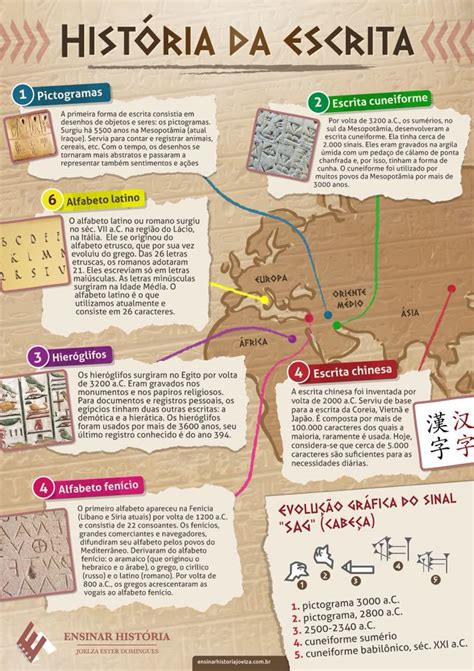 HISTÓRIA DA ESCRITA
1 Pictogramas
A primeira forma de escrita consistia em
desenhos de objetos e seres: os pictogramas.
Surgiu há 5500 anos na Mesopotâmia (atual
Iraque). Servia para contar e registrar animais,
cereais, etc. Com o tempo, os desenhos se
tornaram mais abstratos e passaram a
representar também sentimentos e ações
2 Escrita cuneiforme
Por volta de 3200 a.C., os sumérios, no
sul da Mesopotâmia, desenvolveram a
escrita cuneiforme. Ela tinha cerca de
2.000 sinais. Eles eram gravados na argila
úmida com um pedaço de cálamo de ponta
chanfrada e, por isso, tinham a forma de
cunha. O cuneiforme foi utilizado por
muitos povos da Mesopotâmia por mais de
3000 anos.
6 Alfabeto latino
O alfabeto latino ou romano surgiu
no séc. VII a.C. na região do Lácio,
na Itália. Ele se originou do
alfabeto etrusco, que por sua vez
evoluiu do grego. Das 26 letras
etruscas, os romanos adotaram
21. Eles escreviam só em letras
maiúsculas. As letras minúsculas
surgiram na Idade Média. O
alfabeto latino é o que
utilizamos atualmente e
consiste em 26 caracteres.
EUROPA
ORIENTE
MÉDIO
ÁSIA
ÁFRICA
3 Hieróglifos
Os hieróglifos surgiram no Egito por volta
de 3200 a.C. Eram gravados nos
monumentos e nos papiros religiosos.
Para documentos e registros pessoais, os
egípcios tinham duas outras escritas: a
demótica e a hierática. Os hieróglifos
foram usados por mais de 3600 anos, seu
último registro conhecido é do ano 394.
4 Escrita chinesa
A escrita chinesa foi inventada por
volta de 2000 a.C. Serviu de base
para a escrita da Coreia, Vietnã e
Japão. É composta por mais de
100.000 caracteres dos quais a
maioria, raramente é usada. Hoje,
considera-se que cerca de 5.000
caracteres são suficientes para as
necessidades diárias.
漢汉
字字
4 Alfabeto fenício
O primeiro alfabeto apareceu na Fenícia
(Líbano e Síria atuais) por volta de 1200 a.C.
e consistia de 22 consoantes. Os fenícios,
grandes comerciantes e navegadores,
difundiram seu alfabeto pelos povos do
Mediterrâneo. Derivaram do alfabeto
fenício: o aramaico (que originou o
hebraico e o árabe), o grego, o cirílico
(russo) e o latino (romano). Por volta de
800 a.C., os gregos acrescentaram as
vogais ao alfabeto fenício.
EVOLUÇÃO GRÁFICA DO SINAL
"SAG" (CABEÇA)
1 2 3 4 5
1. pictograma 3000 a.C.
2. pictograma, 2800 a.C.
3. 2500-2340 a.C.
4. cuneiforme sumério
5. cuneiforme babilônico, séc. XXI a.C.
ENSINAR HISTÓRIA
JOELZA ESTER DOMINGUES
ensinarhistoriajoelza.com.br